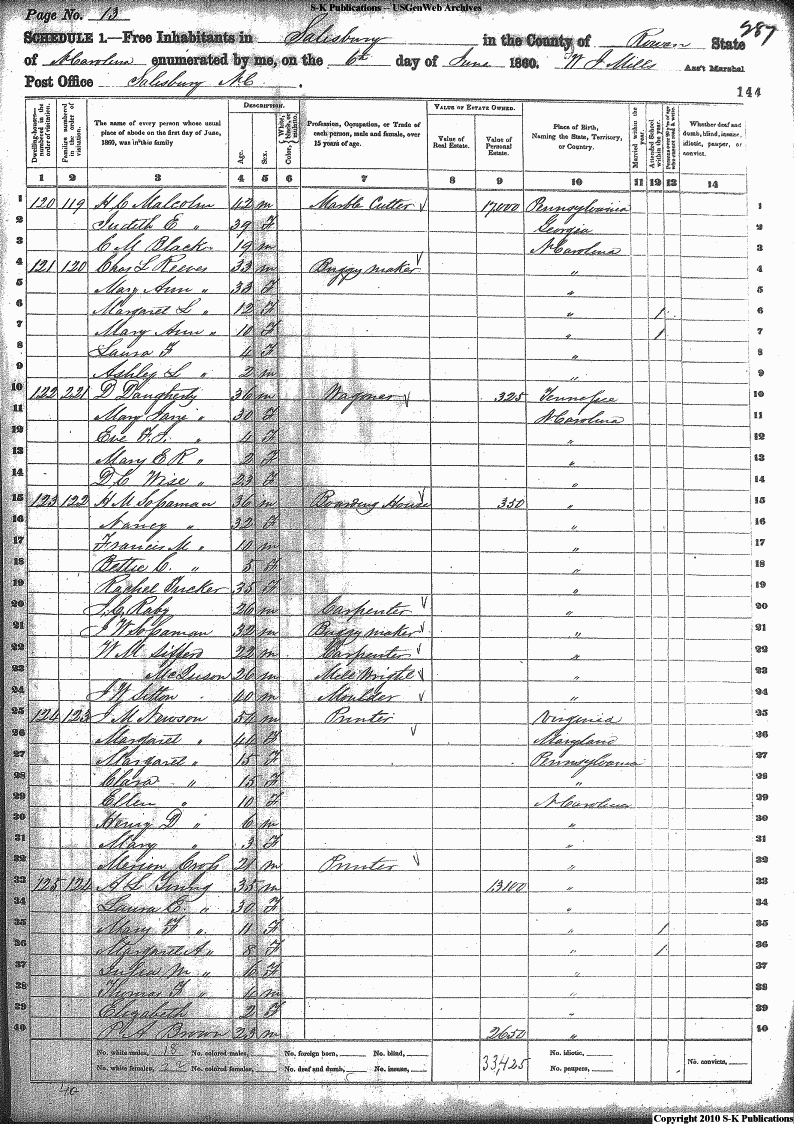 S-K Publications – USGenWeb Archives
Page No. 13
287
SCHEDULE 1.—Free Inhabitants in Salisbury in the County of Rowan State
of N Carolina enumerated by me, on the 6th day of June 1860. W J Mills Ass't Marshal
Post Office Salisbury N.C.
144
Dwelling-houses numbered in the order of visitation.
Families numbered in the order of visitation.
The name of every person whose usual place of abode on the first day of June, 1860, was in this family
DESCRIPTION.
Age.
Sex.
Color, White, black, or mulatto.
Profession, Occupation, or Trade of each person, male and female, over 15 years of age.
VALUE OF ESTATE OWNED.
Value of Real Estate.
Value of Personal Estate.
Place of Birth, Naming the State, Territory, or Country.
Married within the year.
Attended School within the year.
Whether deaf and dumb, blind, insane, idiotic, pauper, or convict.
1 2 3 4 5 6 7 8 9 10 11 12 13 14
1 120 119 H C Malcolm 42 m Marble Cutter 17,000 Pennsylvania 1
2 Judith E " 39 F Georgia 2
3 C M Black 19 m N Carolina 3
4 121 120 Chas L Reeves 33 m Buggy maker " 4
5 Mary Ann " 33 F " 5
6 Margaret L " 12 F " 1 6
7 Mary Ann " 10 F " 1 7
8 Laura F 4 F " 8
9 Ashley L " 2 m " 9
10 122 221 D Daugherty 36 m Wagoner 325 Tennessee 10
11 Mary Jane " 30 F N Carolina 11
12 Eve F.J. " 4 F " 12
13 Mary E R " 2 F " 13
14 D C Wise " 23 F " 14
15 123 122 H M Sossaman 36 m Boarding House 350 " 15
16 Nancy " 32 F " 16
17 Francis M " 10 m " 17
18 Bettie C. " 5 F " 18
19 Rachel Tucker 35 F " 19
20 J. C. Raby 26 m Carpenter " 20
21 J W Sossaman 32 m Buggy maker " 21
22 W M Sifferd 22 m Carpenter " 22
23 26 m Mill Wright " 23
24 J W Sitton 40 m Moulder " 24
25 124 123 J M Newson 54 m Printer Virginia 25
26 Margaret " 44 F Maryland 26
27 Margaret " 15 F Pennsylvania 27
28 Clara " 15 F " 28
29 Ellen " 10 F N Carolina 29
30 Henry D " 6 m " 30
31 Mary " 3 F " 31
32 21 m Printer " 32
33 125 124 A L Young 35 m 13100 " 33
34 Laura E. " 30 F " 34
35 Mary F " 11 F " 1 35
36 Margaret A " 8 F " 1 36
37 Julia M " 6 F " 37
38 Thomas F " 4 m " 38
39 Elizabeth 2 F " 39
40 P. A Brown 23 m 2650 " 40
No. white males, 18 No. colored males, No. foreign born, No. blind, No. idiotic,
No. white females, 22 No. colored females, No. deaf and dumb, No. insane, 33,425 No. paupers, No. convicts,
40
Copyright 2010 S-K Publications